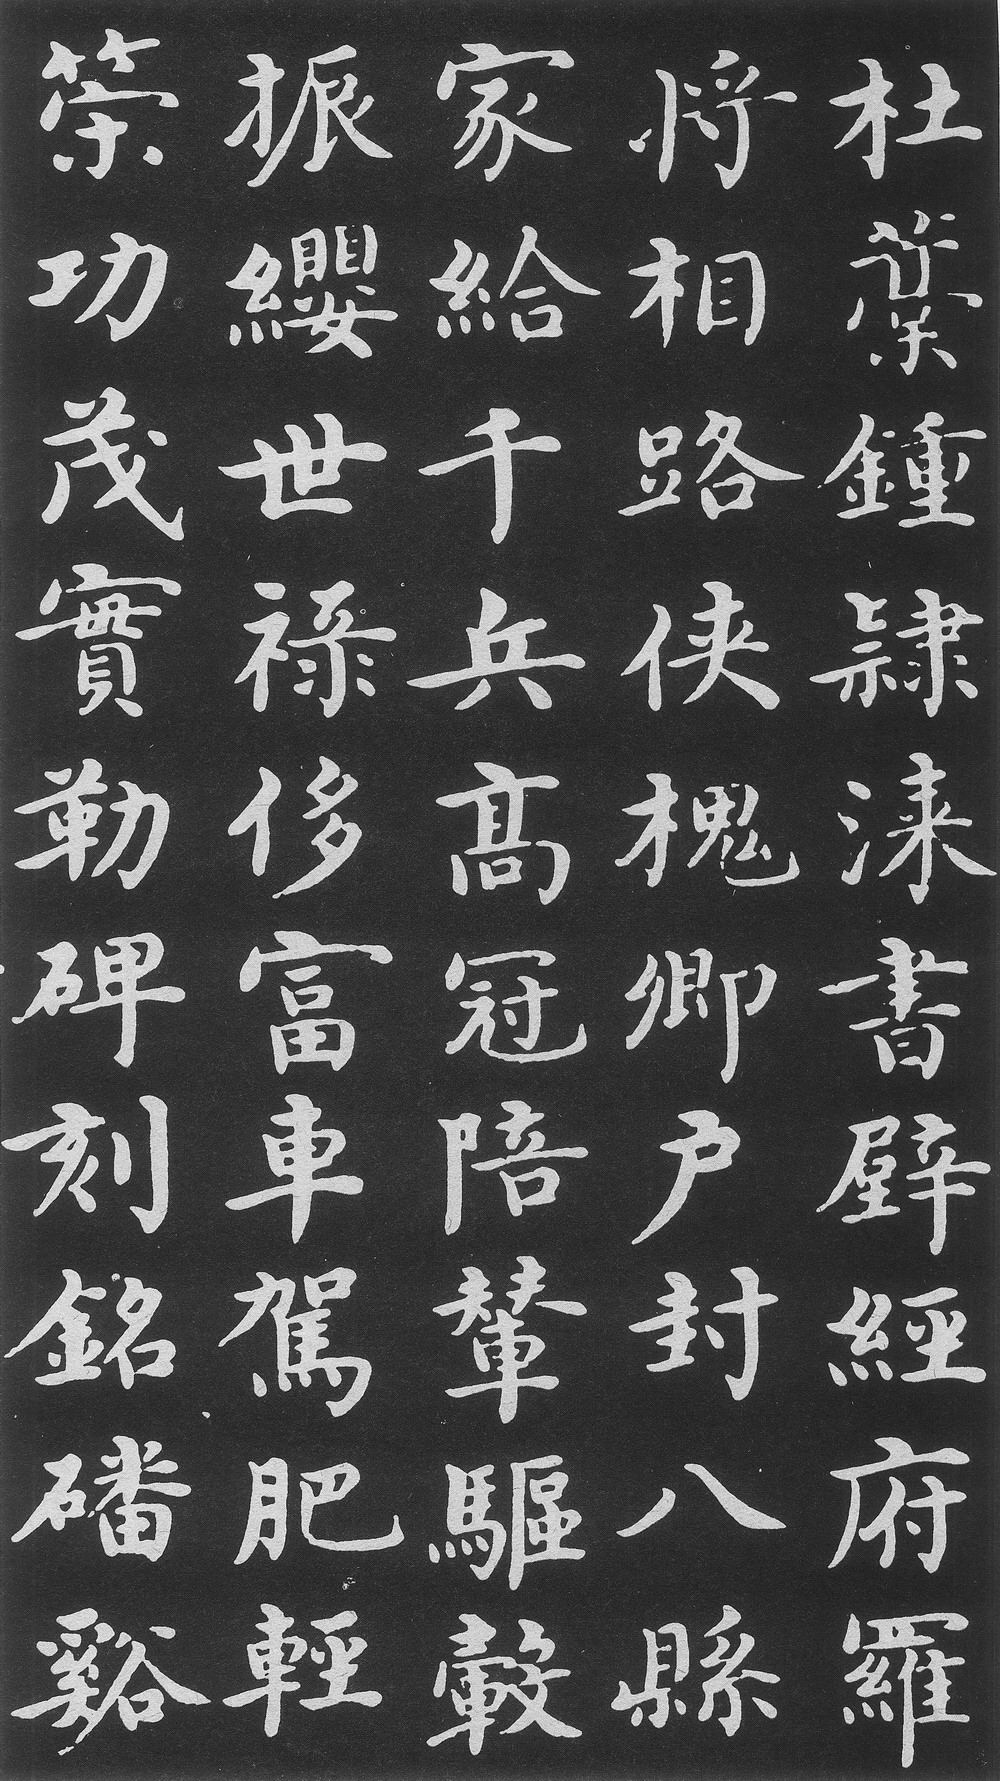 杜稾鍾隸漆書壁經府羅
將相路俠槐卿户封八縣
家給千兵高冠陪輦驅轂
振纓世禄侈富車駕肥輕
策功茂實勒碑刻銘磻谿